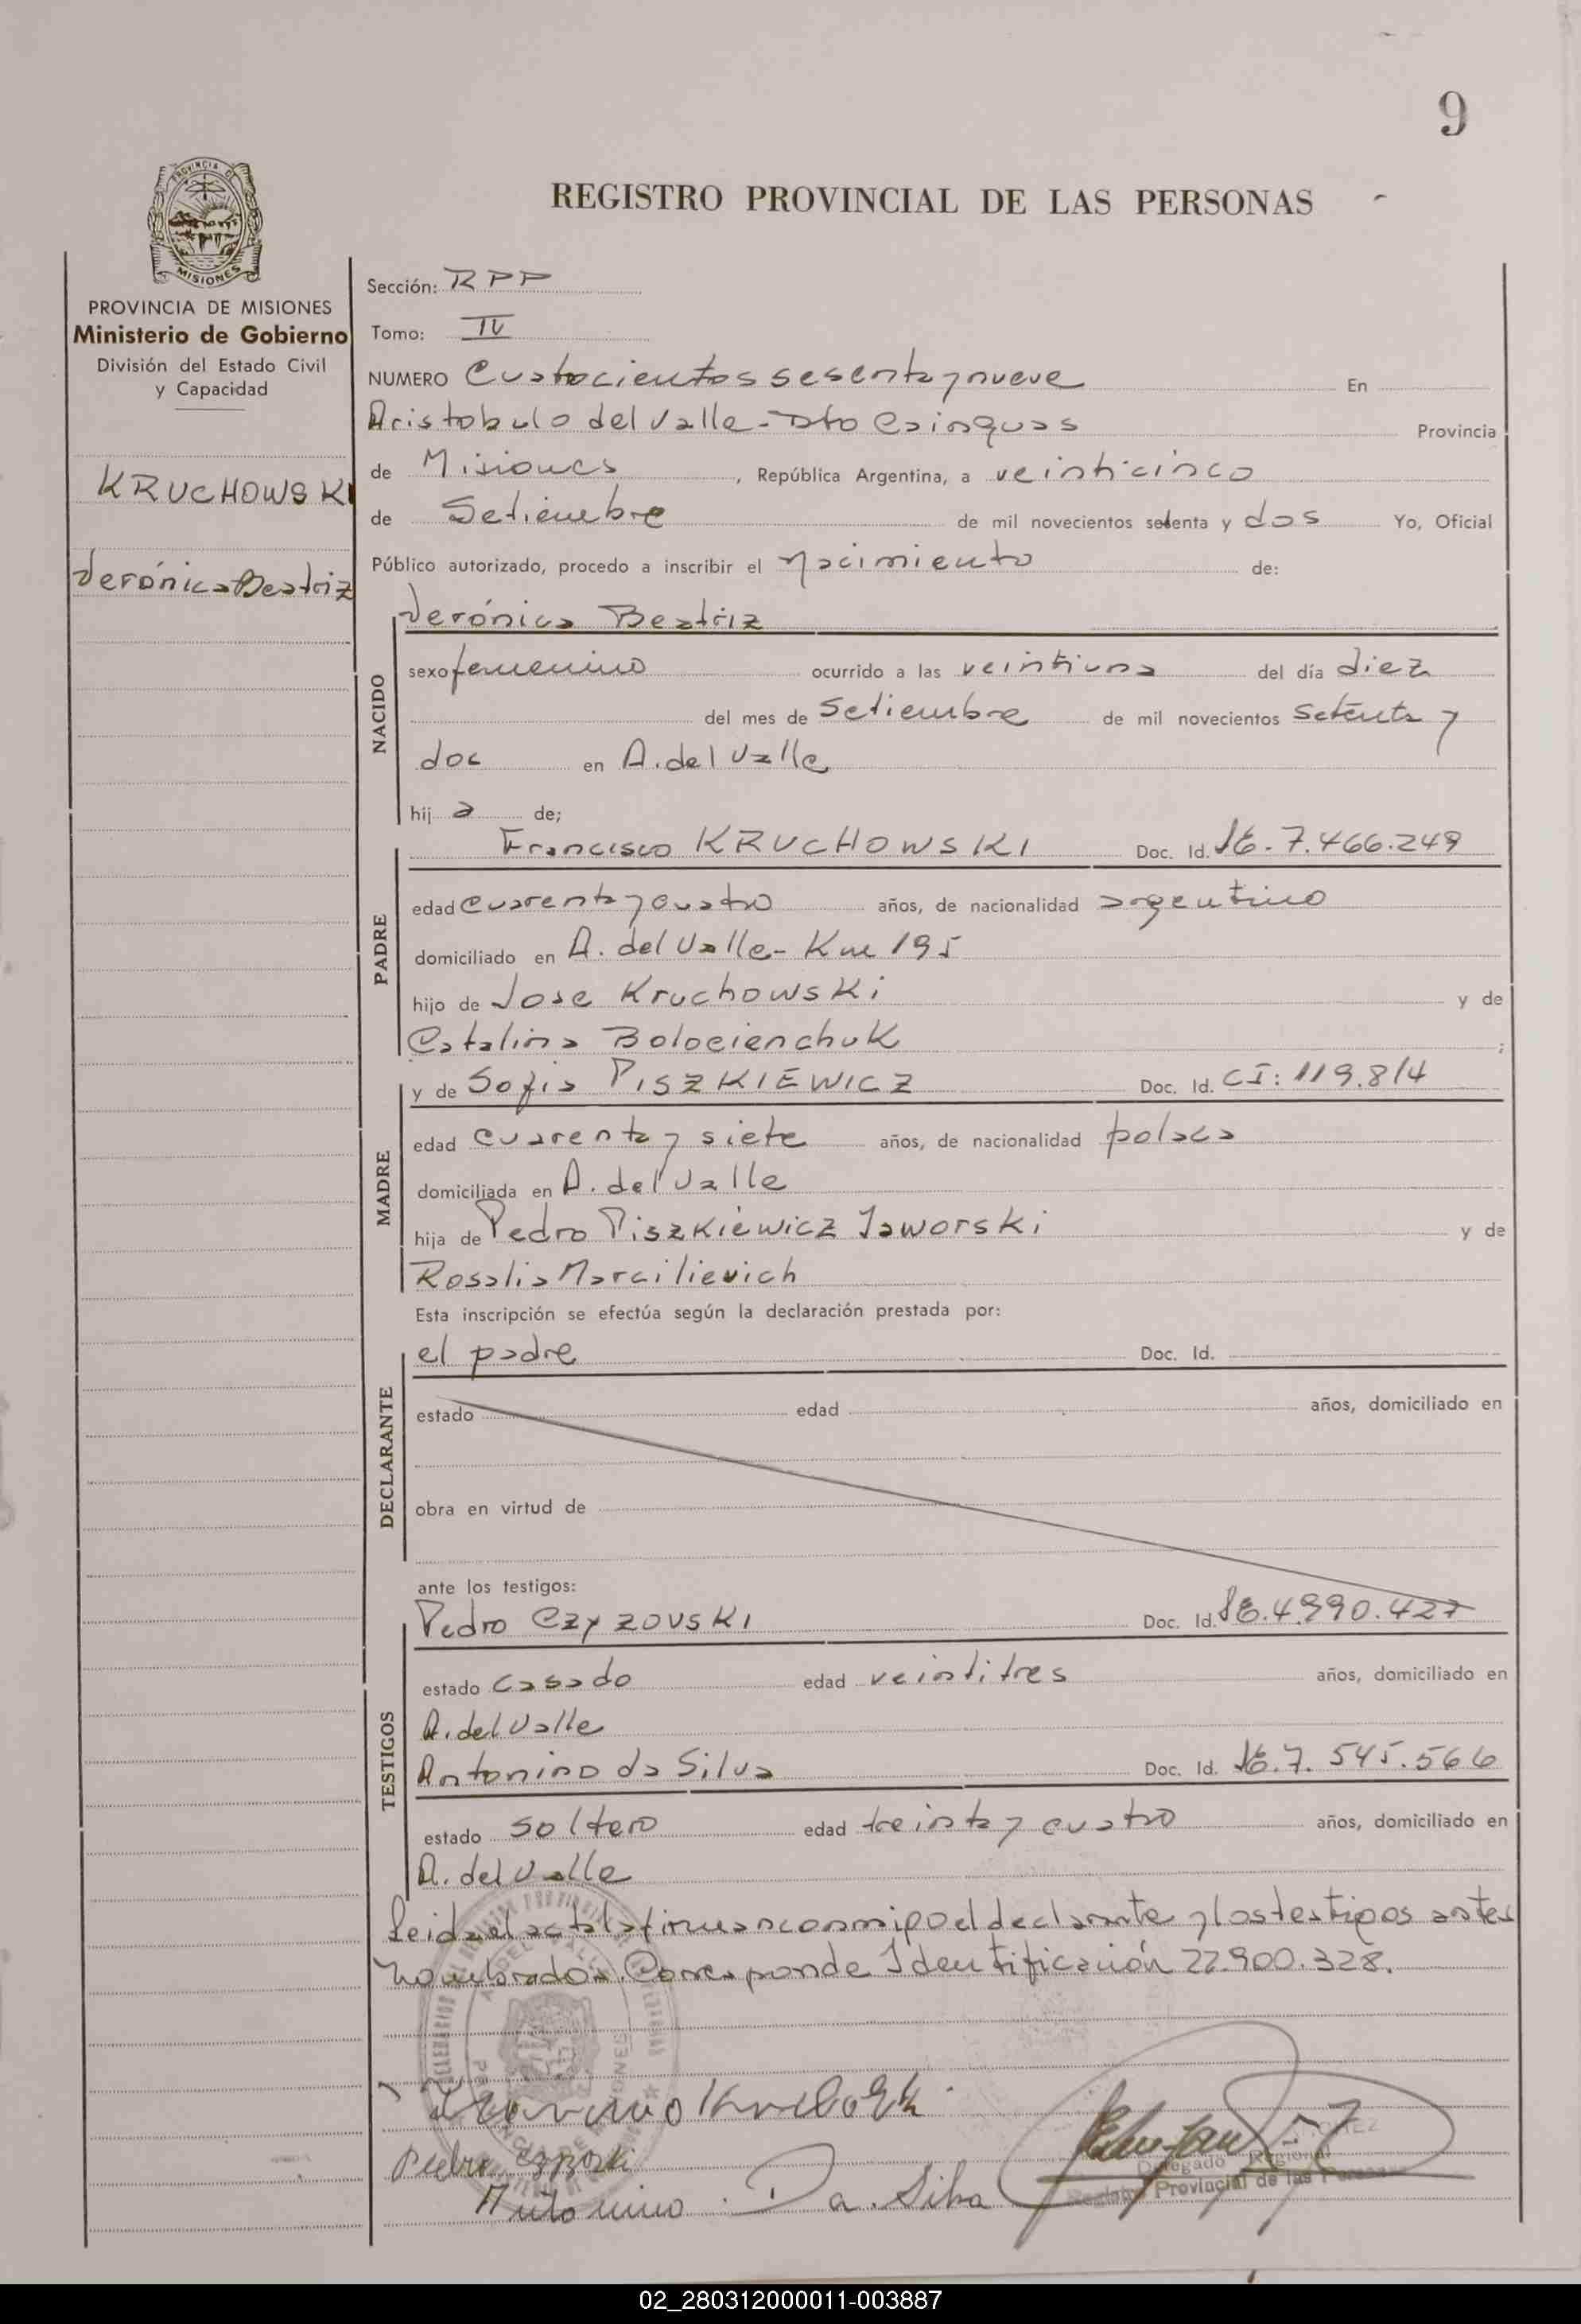 9
REGISTRO PROVINCIAL DE LAS PERSONAS
PROVINCIA DE MISIONES
Ministerio de Gobierno
División del Estado Civil
y Capacidad
KRUCHOWSKI
Verónica Beatriz
Sección: RPP
Tomo: IV
NUMERO Cuatrocientos sesenta y nueve En
Aristobulo del Valle - Dto Cainguas Provincia
de Misiones, República Argentina, a veinticinco
de Setiembre de mil novecientos setenta y dos Yo, Oficial
Público autorizado, procedo a inscribir el nacimiento de:
NACIDO
Verónica Beatriz
sexo femenino ocurrido a las veintiuna del día diez
del mes de Setiembre de mil novecientos setenta y
dos en A. del Valle
hij a de;
PADRE
Francisco KRUCHOWSKI Doc. Id. 7.466.249
edad cuarenta y cuatro años, de nacionalidad argentino
domiciliado en A. del Valle - Km 195
hijo de Jose Kruchowski y de
Catalina Bolocienchuk ;
MADRE
y de Sofia PISZKIEWICZ Doc. Id. CI: 119.814
edad cuarenta y siete años, de nacionalidad polaca
domiciliada en A. del Valle
hija de Pedro Piszkiewicz Jaworski y de
Rosalia Marcilievich
Esta inscripción se efectúa según la declaración prestada por:
DECLARANTE
el padre Doc. Id.
estado edad años, domiciliado en
obra en virtud de
ante los testigos:
TESTIGOS
Pedro CZYZOVSKI Doc. Id. 4.990.427
estado casado edad veintitres años, domiciliado en
A. del Valle
Antonino da Silva Doc. Id. 7.545.566
estado soltero edad treinta y cuatro años, domiciliado en
A. del Valle
Leida el acta la firman conmigo el declarante y los testigos antes
nombrados. Corresponde Identificación 22.900.328.
Antonino Da Silva
Delegado Regional
Registro Provincial de las Personas
02_280312000011-003887